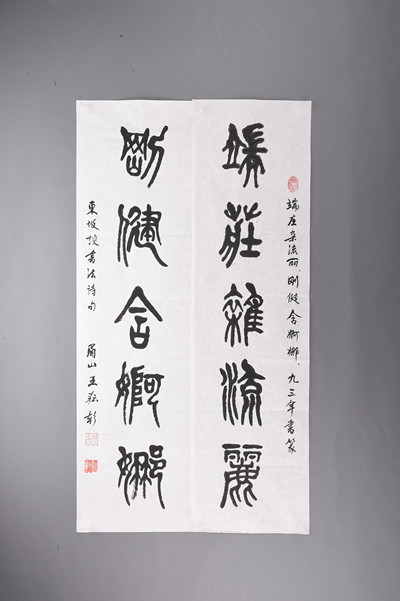 端庄杂流丽、刚健含婀娜、九三年書篆
端莊雜流麗
剛健含婀娜
東坡谈書法诗句
眉山王